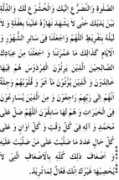 الصَّلٰوةَ وَ الضَّرْعَ إِلَيْكَ وَ الْخُشُوعَ لَكَ وَ الذِّلَّةَ
بَيْنَ يَدَيْكَ حَتَّى لَا يَشْهَدَ نَهَارُهُ عَلَيْنَا بِغَفْلَةٍ وَ لَا
لَيْلُهُ بِتَفْرِيطٍ اَللّٰهُمَّ وَ اجْعَلْنَا فِي سَائِرِ الشُّهُورِ وَ
الْأَيَّامِ كَذٰلِكَ مَا عَمَّرْتَنَا وَ اجْعَلْنَا مِنْ عِبَادِكَ
الصَّالِحِينَ الَّذِينَ يَرِثُونَ الْفِرْدَوْسَ هُمْ فِيهَا
خَالِدُونَ وَ الَّذِينَ يُؤْتُونَ مَا آتَوْا وَ قُلُوبُهُمْ وَجِلَةٌ
أَنَّهُمْ إِلَى رَبِّهِمْ رَاجِعُونَ وَ مِنَ الَّذِينَ يُسَارِعُونَ
فِي الْخَيْرَاتِ وَ هُمْ لَهَا سَابِقُونَ اَللّٰهُمَّ صَلِّ عَلَى
مُحَمَّدٍ وَ آلِهِ فِي كُلِّ وَقْتٍ وَ كُلِّ أَوَانٍ وَ عَلَى
كُلِّ حَالٍ عَدَدَ مَا صَلَّيْتَ عَلَى مَنْ صَلَّيْتَ عَلَيْهِ
وَ أَضْعَافَ ذٰلِكَ كُلِّهِ بِالْأَضْعَافِ الَّتِي لَا
يُحْصِيهَا غَيْرُكَ إِنَّكَ فَعَّالٌ لِمَا تُرِيدُ.